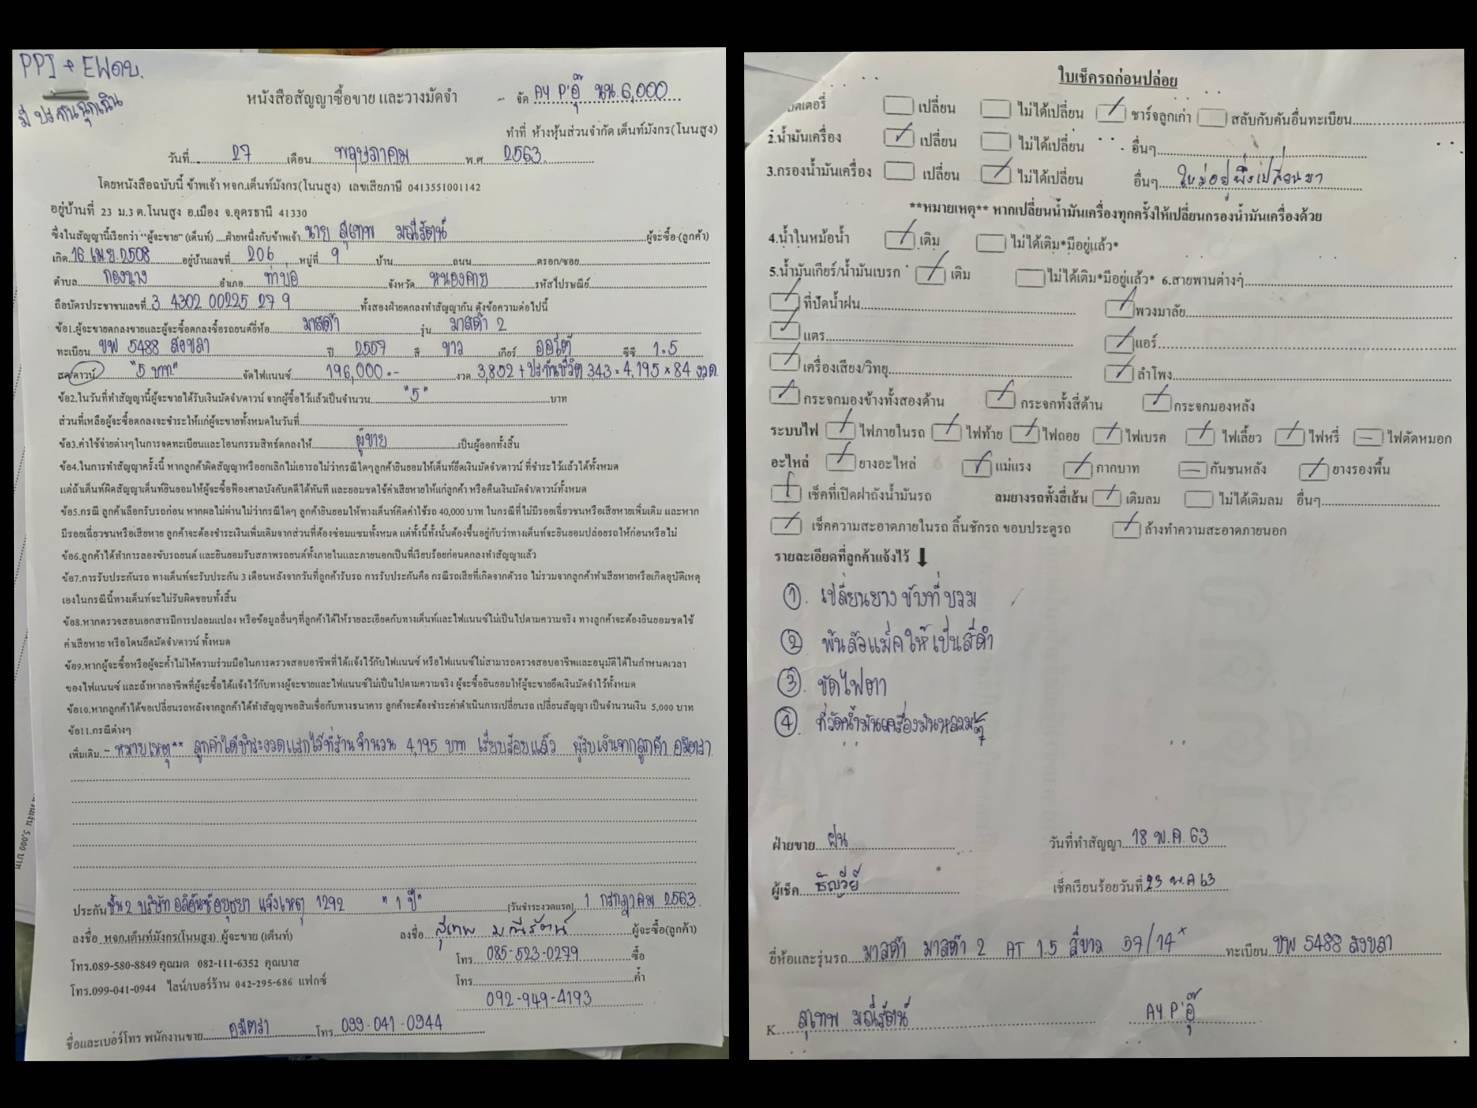 PPI + EWดบ.
มี ประกันฉุกเฉิน
หนังสือสัญญาซื้อขาย และวางมัดจำ
- จัด AY P'อุ๊ นน 6,000
ทำที่ ห้างหุ้นส่วนจำกัด เต็นท์มังกร(โนนสูง)
วันที่ 27 เดือน พฤษภาคม พ.ศ 2563.
โดยหนังสือฉบับนี้ ข้าพเจ้า หจก.เต็นท์มังกร(โนนสูง) เลขเสียภาษี 0413551001142
อยู่บ้านที่ 23 ม.3 ต.โนนสูง อ.เมือง จ.อุดรธานี 41330
ซึ่งในสัญญานี้เรียกว่า "ผู้จะขาย" (เต็นท์) ....ฝ่ายหนึ่งกับข้าพเจ้า นาย สุเทพ มณีรัตน์ ผู้จะซื้อ (ลูกค้า)
เกิด 16 เม.ย. 2508 อยู่บ้านเลขที่ 206 หมู่ที่ 9 บ้าน ถนน ตรอก/ซอย
ตำบล กองนาง อำเภอ ท่าบ่อ จังหวัด หนองคาย รหัสไปรษณีย์
ถือบัตรประชาชนเลขที่ 3 4302 00225 27 9 ทั้งสองฝ่ายตกลงทำสัญญากัน ดังข้อความต่อไปนี้
ข้อ1.ผู้จะขายตกลงขายและผู้จะซื้อตกลงซื้อรถยนต์ยี่ห้อ มาสด้า รุ่น มาสด้า 2
ทะเบียน ขพ 5488 สงขลา ปี 2557 สี ขาว เกียร์ ออโต้ ซีซี 1.5
สด/ดาวน์ "5 บาท" จัดไฟแนนซ์ 196,000.- งวด 3,852 + ประกันชีวิต 343 = 4,195 x 84 งวด
ข้อ2.ในวันที่ทำสัญญานี้ผู้จะขายได้รับเงินมัดจำ/ดาวน์ จากผู้ซื้อไว้แล้วเป็นจำนวน "5" บาท
ส่วนที่เหลือผู้จะซื้อตกลงจะชำระให้แก่ผู้จะขายทั้งหมดในวันที่
ข้อ3.ค่าใช้จ่ายต่างๆในการจดทะเบียนและโอนกรรมสิทธ์ตกลงให้ ผู้ขาย เป็นผู้ออกทั้งสิ้น
ข้อ4.ในการทำสัญญาครั้งนี้ หากลูกค้าผิดสัญญาหรือยกเลิกไม่เอารถไม่ว่ากรณีใดๆลูกค้ายินยอมให้เต็นท์ยึดเงินมัดจำ/ดาวน์ ที่ชำระไว้แล้วได้ทั้งหมด
แต่ถ้าเต็นท์ผิดสัญญาเต็นท์ยินยอมให้ผู้จะซื้อฟ้องศาลบังคับคดีได้ทันที และยอมชดใช้ค่าเสียหายให้แก่ลูกค้า หรือคืนเงินมัดจำ/ดาวน์ทั้งหมด
ข้อ5.กรณี ลูกค้าเลือกรับรถก่อน หากผลไม่ผ่านไม่ว่ากรณีใดๆ ลูกค้ายินยอมให้ทางเต็นท์คิดค่าใช้รถ 40,000 บาท ในกรณีที่ไม่มีรอยเฉี่ยวชนหรือเสียหายเพิ่มเติม และหาก
มีรอยเฉี่ยวชนหรือเสียหาย ลูกค้าจะต้องชำระเงินเพิ่มเติมจากส่วนที่ต้องซ่อมแซมทั้งหมด แต่ทั้งนี้ทั้งนั้นต้องขึ้นอยู่กับว่าทางเต็นท์จะยินยอมปล่อยรถให้ก่อนหรือไม่
ข้อ6.ลูกค้าได้ทำการลองขับรถยนต์ และยินยอมรับสภาพรถยนต์ทั้งภายในและภายนอกเป็นที่เรียบร้อยก่อนตกลงทำสัญญาแล้ว
ข้อ7.การรับประกันรถ ทางเต็นท์จะรับประกัน 3 เดือนหลังจากวันที่ลูกค้ารับรถ การรับประกันคือ กรณีรถเสียที่เกิดจากตัวรถ ไม่รวมจากลูกค้าทำเสียหายหรือเกิดอุบัติเหตุ
เองในกรณีนี้ทางเต็นท์จะไม่รับผิดชอบทั้งสิ้น
ข้อ8.หากตรวจสอบเอกสารมีการปลอมแปลง หรือข้อมูลอื่นๆที่ลูกค้าได้ให้รายละเอียดกับทางเต็นท์และไฟแนนซ์ไม่เป็นไปตามความจริง ทางลูกค้าจะต้องยินยอมชดใช้
ค่าเสียหาย หรือโดนยึดมัดจำ/ดาวน์ ทั้งหมด
ข้อ9.หากผู้จะซื้อหรือผู้จะค้ำไม่ให้ความร่วมมือในการตรวจสอบอาชีพที่ได้แจ้งไว้กับไฟแนนซ์ หรือไฟแนนซ์ไม่สามารถตรวจสอบอาชีพและอนุมัติได้ในกำหนดเวลา
ของไฟแนนซ์ และถ้าหากอาชีพที่ผู้จะซื้อได้แจ้งไว้กับทางผู้จะขายและไฟแนนซ์ไม่เป็นไปตามความจริง ผู้จะซื้อยินยอมให้ผู้จะขายยึดเงินมัดจำไว้ทั้งหมด
ข้อ10.หากลูกค้าได้ขอเปลี่ยนรถหลังจากลูกค้าได้ทำสัญญาขอสินเชื่อกับทางธนาคาร ลูกค้าจะต้องชำระค่าดำเนินการเปลี่ยนรถ เปลี่ยนสัญญา เป็นจำนวนเงิน 5,000 บาท
ข้อ11.กรณีต่างๆ
เพิ่มเติม - หมายเหตุ** ลูกค้าได้ชำระงวดแรกไว้ที่ร้าน จำนวน 4,195 บาท เรียบร้อยแล้ว ผู้รับเงินจากลูกค้า อมิตรา
ประกัน ชั้น 2 บริษัท อลิอันซ์อยุธยา แจ้งเหตุ 1292 "1 ปี" (วันชำระงวดแรก) 1 กรกฎาคม 2563.
ลงชื่อ หจก.เต็นท์มังกร(โนนสูง) ผู้จะขาย (เต็นท์) ลงชื่อ สุเทพ มณีรัตน์ ผู้จะซื้อ(ลูกค้า)
โทร.089-580-8849 คุณมด 082-111-6352 คุณบาส โทร 085-523-0279 ซื้อ
โทร.099-041-0944 ไลน์/เบอร์ร้าน 042-295-686 แฟกซ์ โทร ค้ำ
092-949-4193
ชื่อและเบอร์โทร พนักงานขาย อมิตรา โทร 099-041-0944
ใบเช็ครถก่อนปล่อย
ตเตอรี่ เปลี่ยน ไม่ได้เปลี่ยน ชาร์จลูกเก่า สลับกับคันอื่นทะเบียน
2.น้ำมันเครื่อง เปลี่ยน ไม่ได้เปลี่ยน อื่นๆ
3.กรองน้ำมันเครื่อง เปลี่ยน ไม่ได้เปลี่ยน อื่นๆ ใหม่อยู่พึ่งเปลี่ยนมา
**หมายเหตุ** หากเปลี่ยนน้ำมันเครื่องทุกครั้งให้เปลี่ยนกรองน้ำมันเครื่องด้วย
4.น้ำในหม้อน้ำ เติม ไม่ได้เติม*มีอยู่แล้ว*
5.น้ำมันเกียร์/น้ำมันเบรก เติม ไม่ได้เติม*มีอยู่แล้ว* 6.สายพานต่างๆ
ที่ปัดน้ำฝน พวงมาลัย
แตร แอร์
เครื่องเสียง/วิทยุ ลำโพง
กระจกมองข้างทั้งสองด้าน กระจกทั้งสี่ด้าน กระจกมองหลัง
ระบบไฟ ไฟภายในรถ ไฟท้าย ไฟถอย ไฟเบรค ไฟเลี้ยว ไฟหรี่ ไฟตัดหมอก
อะไหล่ ยางอะไหล่ แม่แรง กากบาท กันชนหลัง ยางรองพื้น
เช็คที่เปิดฝาถังน้ำมันรถ ลมยางรถทั้งสี่เส้น เติมลม ไม่ได้เติมลม อื่นๆ
เช็คความสะอาดภายในรถ ลิ้นชักรถ ขอบประตูรถ ล้างทำความสะอาดภายนอก
รายละเอียดที่ลูกค้าแจ้งไว้
①. เปลี่ยนยาง ข้างที่ บวม
② พ่นล้อแม็คให้ เป็นสีดำ
③. ขัดไฟตา
④. ที่วัดน้ำมันเครื่องมันหลวม
ฝ่ายขาย ฝน วันที่ทำสัญญา 18 พ.ค. 63
ผู้เช็ค เช็คเรียบร้อยวันที่ 23 พ.ค 63
ยี่ห้อและรุ่นรถ มาสด้า มาสด้า 2 AT 1.5 สีขาว 57/14* ทะเบียน ขพ 5488 สงขลา
K. สุเทพ มณีรัตน์ AY P'อุ๊